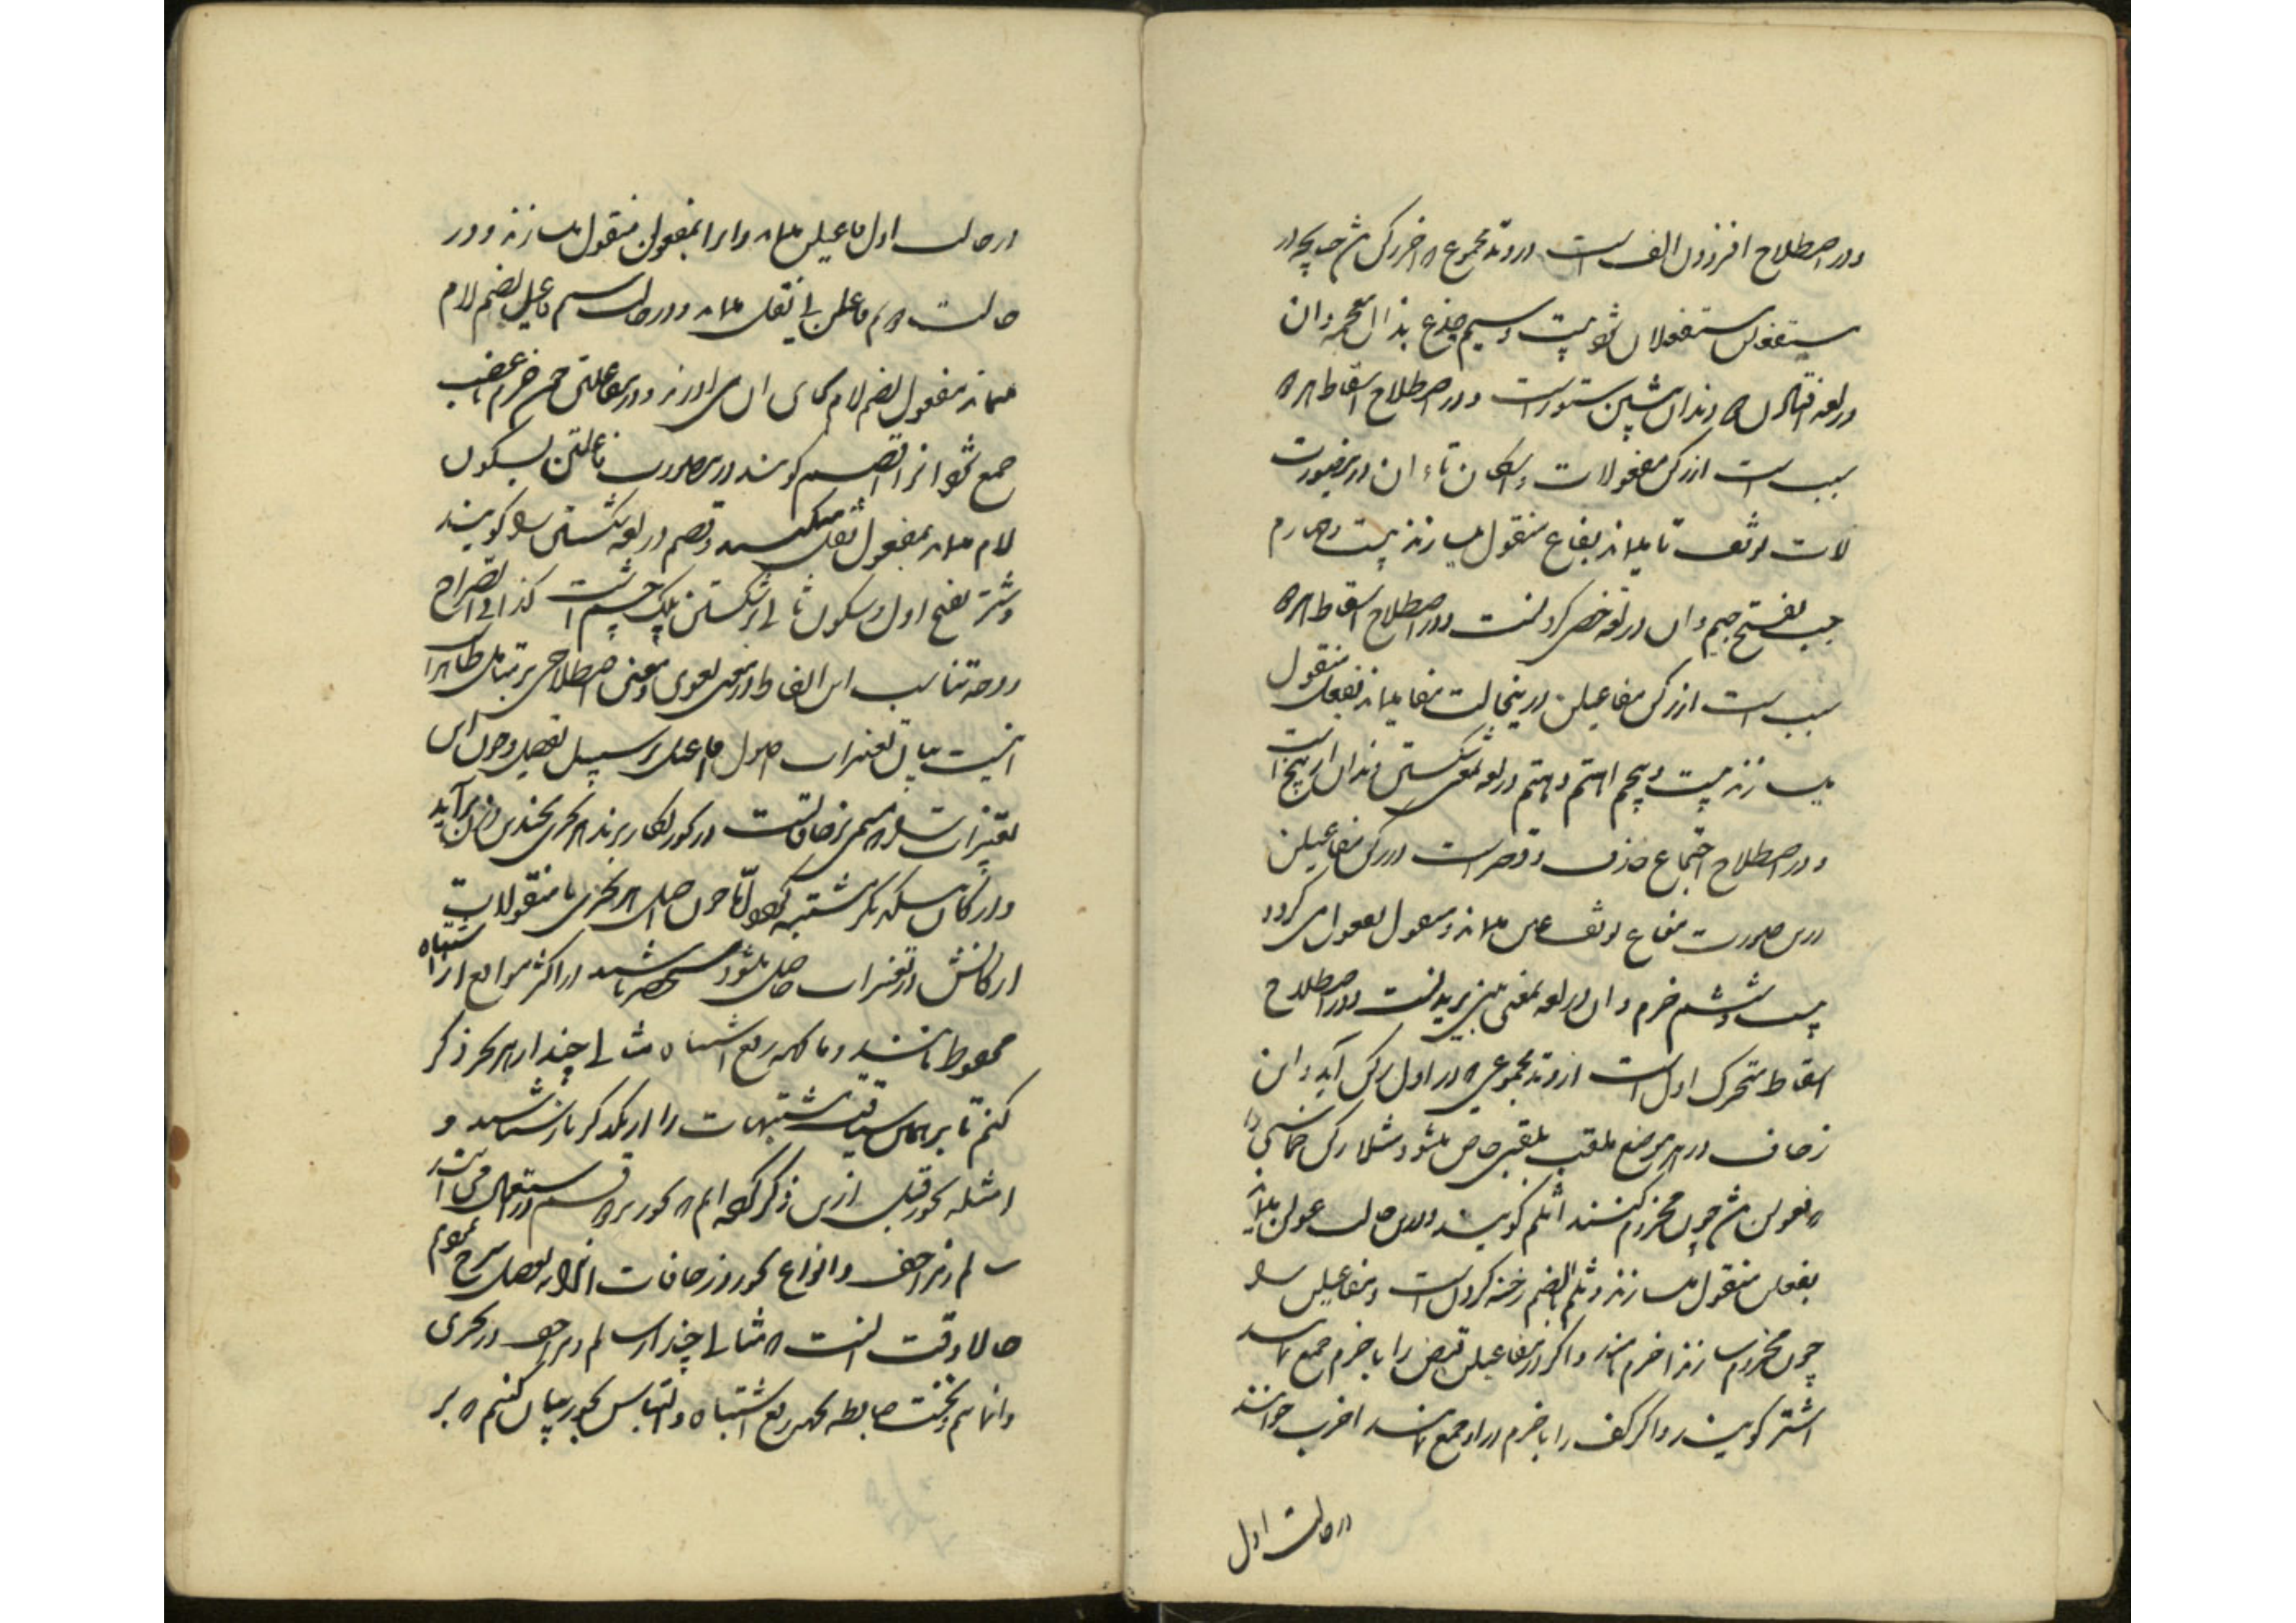 ودر اصطلاح افزودن الف است در وتد مجموع که آخر رکن باشد چنانچه در
مستفعلن مستفعلان شود بیست وسیم جذع بذال معجمه وآن
در لغة دندان پیشین ستور است ودر اصطلاح اسقاط هر دو
سبب است از رکن مفعولات واسکان تاء آن درینصورت
لات موقف تا بماند بفاع منقول میسازند بیست وچهارم
جب بفتح جیم وآن در لغة خصی کردنست ودر اصطلاح اسقاط هر دو
سبب است از رکن مفاعیلن درینحالت مفا بماند بفعل منقول
میسازند بیست وپنجم اهتم وهتم در لغة بمعنی شکستن دندان از بیخ است
ودر اصطلاح اجتماع حذف وقصر است در رکن مفاعیلن
درین صورت مفاع بوقف عین بماند ومنقول بفعول می گردد
بیست وششم خرم وآن در لغة بمعنی بینی بریدنست ودر اصطلاح
اسقاط متحرک اول است از وتد مجموعی که در اول رکن آید واین
زحاف در هر موضع ملقب بلقبی خاص میشود مثلا رکن خماسی را
که فعولن باشد چون مخروم کنند اثلم گویند ودرین حالت عولن بماند
بفعلن منقول میسازند وثلم بالضم رخنه کردن است ومفاعیلن را
چون مخروم سازند اخرم نامند واگر در مفاعیلن قبض را با خرم جمع نمایند
اشتر گویند واگر کف را با خرم در او جمع نمایند اخرب خوانند
در حالت اول
در حالت اول فاعیلن بماند واو را بمفعولن منقول میسازند ودر
حالت دوم فاعلن بی نقل بماند ودر حالت سیم فاعیل بضم لام
بماند مفعول بضم لام بجای آن می آورند ودر مفاعلتن چون خرم با عضب
جمع شود آنرا اقصم گویند درین صورت فاعلتن بسکون
لام بماند بمفعولن نقل میکنند وقصم در لغة شکستن را گویند
وشتر بفتح اول وسکون ثانی برشکستن پلک چشم است کذا فی الصراح
ووجه تناسب این الفاظ در معنی لغوی ومعنی اصطلاحی بر متامل ظاهر است
اینست بیان تغیرات اصول افاعیل بر سبیل تفصیل وچون این
تغیرات که مسمی بزحافات است در بحور بکار برند هر بحری بچندین وزن برآید
وارکان بیکدیگر مشتبه گردد اما چون اصل هر بحری با منقولات
ارکانش از تغیرات حاصل میشود مستحضر باشید در اکثر مواضع از اشتباه
محفوظ باشید وما بجهة رفع اشتباه مثالی چند از هر بحر ذکر
کنم تا بر همان سیاقت مشتبهات را از یکدیگر باز شناسند و
امثله بحور قبل ازین ذکر کرده ایم که بحور بر دو قسم در استعمال می آیند
سالم ومزاحف وانواع بحور وزحافات آنرا بتفصیل شرح نمودیم
حالا وقت آنست که مثالی چند از سالم ومزاحف در هر بحری
وانمایم ونخست ضابطه بجهة رفع اشتباه والتباس بحور بیان کنیم که بر